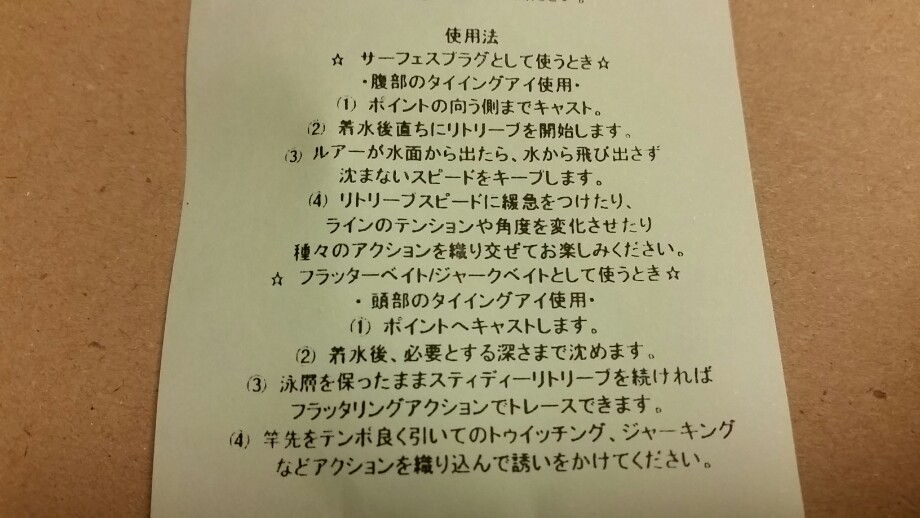 使用法
☆ サーフェスプラグとして使うとき☆
・腹部のタイイングアイ使用・
(1) ポイントの向う側までキャスト。
(2) 着水後直ちにリトリーブを開始します。
(3) ルアーが水面から出たら、水から飛び出さず
沈まないスピードをキープします。
(4) リトリーブスピードに緩急をつけたり、
ラインのテンションや角度を変化させたり
種々のアクションを織り交ぜてお楽しみください。
☆ フラッターベイト/ジャークベイトとして使うとき☆
・頭部のタイイングアイ使用・
(1) ポイントへキャストします。
(2) 着水後、必要とする深さまで沈めます。
(3) 泳層を保ったままスティディーリトリーブを続ければ
フラッタリングアクションでトレースできます。
(4) 竿先をテンポ良く引いてのトゥイッチング、ジャーキング
などアクションを織り込んで誘いをかけてください。